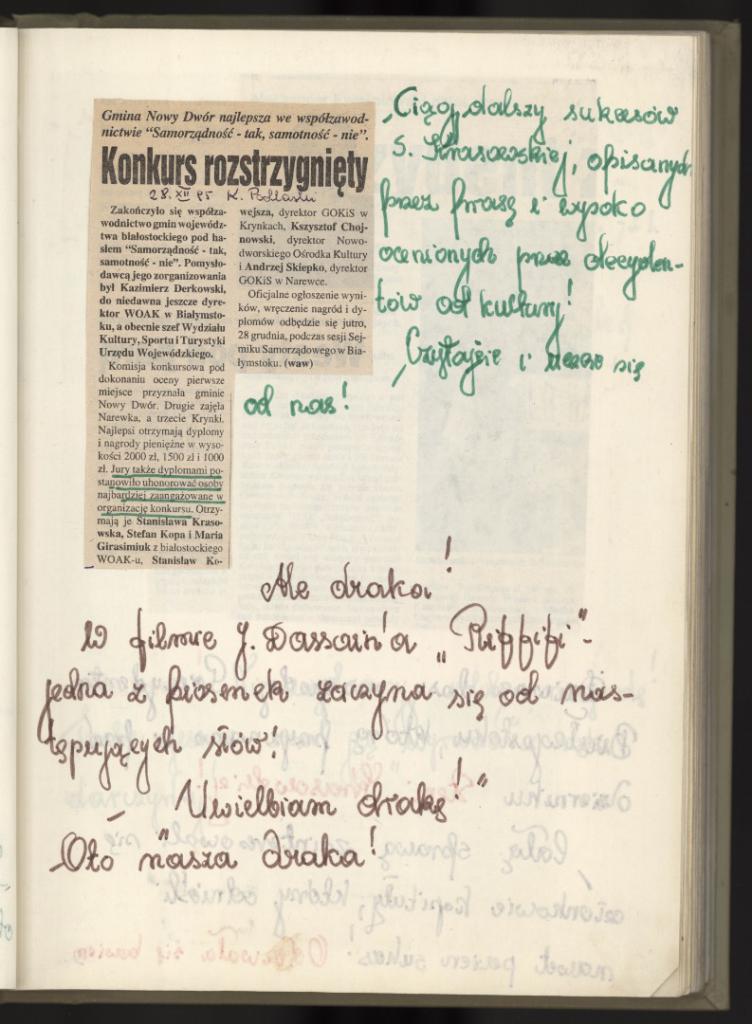 Gmina Nowy Dwór najlepsza we współzawod-
nictwie "Samorządność - tak, samotność - nie".
Konkurs rozstrzygnięty
28.XII 95 K. Podlaski
Zakończyło się współza-
wodnictwo gmin wojewódz-
twa białostockiego pod ha-
słem "Samorządność - tak,
samotność - nie". Pomysło-
dawcą jego zorganizowania
był Kazimierz Derkowski,
do niedawna jeszcze dyre-
ktor WOAK w Białymsto-
ku, a obecnie szef Wydziału
Kultury, Sportu i Turystyki
Urzędu Wojewódzkiego.
Komisja konkursowa pod
dokonaniu oceny pierwsze
miejsce przyznała gminie
Nowy Dwór. Drugie zajęła
Narewka, a trzecie Krynki.
Najlepsi otrzymają dyplomy
i nagrody pieniężne w wyso-
kości 2000 zł, 1500 zł i 1000
zł. Jury także dyplomami po-
stanowiło uhonorować osoby
najbardziej zaangażowane w
organizację konkursu. Otrzy-
mają je Stanisława Kraso-
wska, Stefan Kopa i Maria
Girasimiuk z białostockiego
WOAK-u, Stanisław Ko-
wejsza, dyrektor GOKiS w
Krynkach, Krzysztof Choj-
nowski, dyrektor Nowo-
dworskiego Ośrodka Kultury
i Andrzej Skiepko, dyrektor
GOKiS w Narewce.
Oficjalne ogłoszenie wyni-
ków, wręczenie nagród i dy-
plomów odbędzie się jutro,
28 grudnia, podczas sesji Sej-
miku Samorządowego w Bia-
łymstoku. (waw)
Ciąg dalszy sukcesów
S. Krasowskiej, opisanych
przez prasę i wysoko
ocenionych przez decyden-
tów od kultury!
Czytajcie i uczcie się
od nas!
Ale draka!
W filmie J. Dassain'a „Riffifi"-
jedna z piosenek zaczyna się od nas-
tępujących słów:
„Uwielbiam drakę!"
Oto nasza draka!